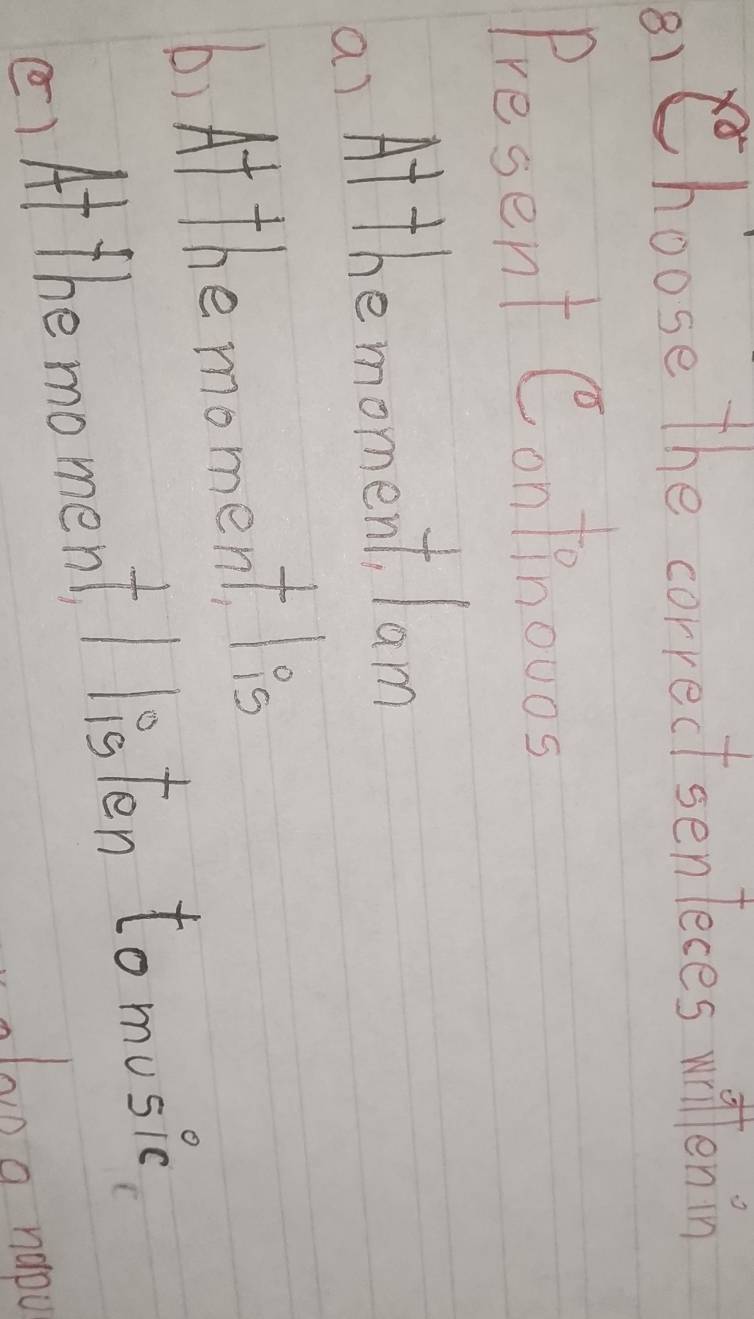 8) Choose the correct senteces written in
Present Continuos
a) At the moment, I am
b) At the moment, I is
c) At the moment, I listen to music,